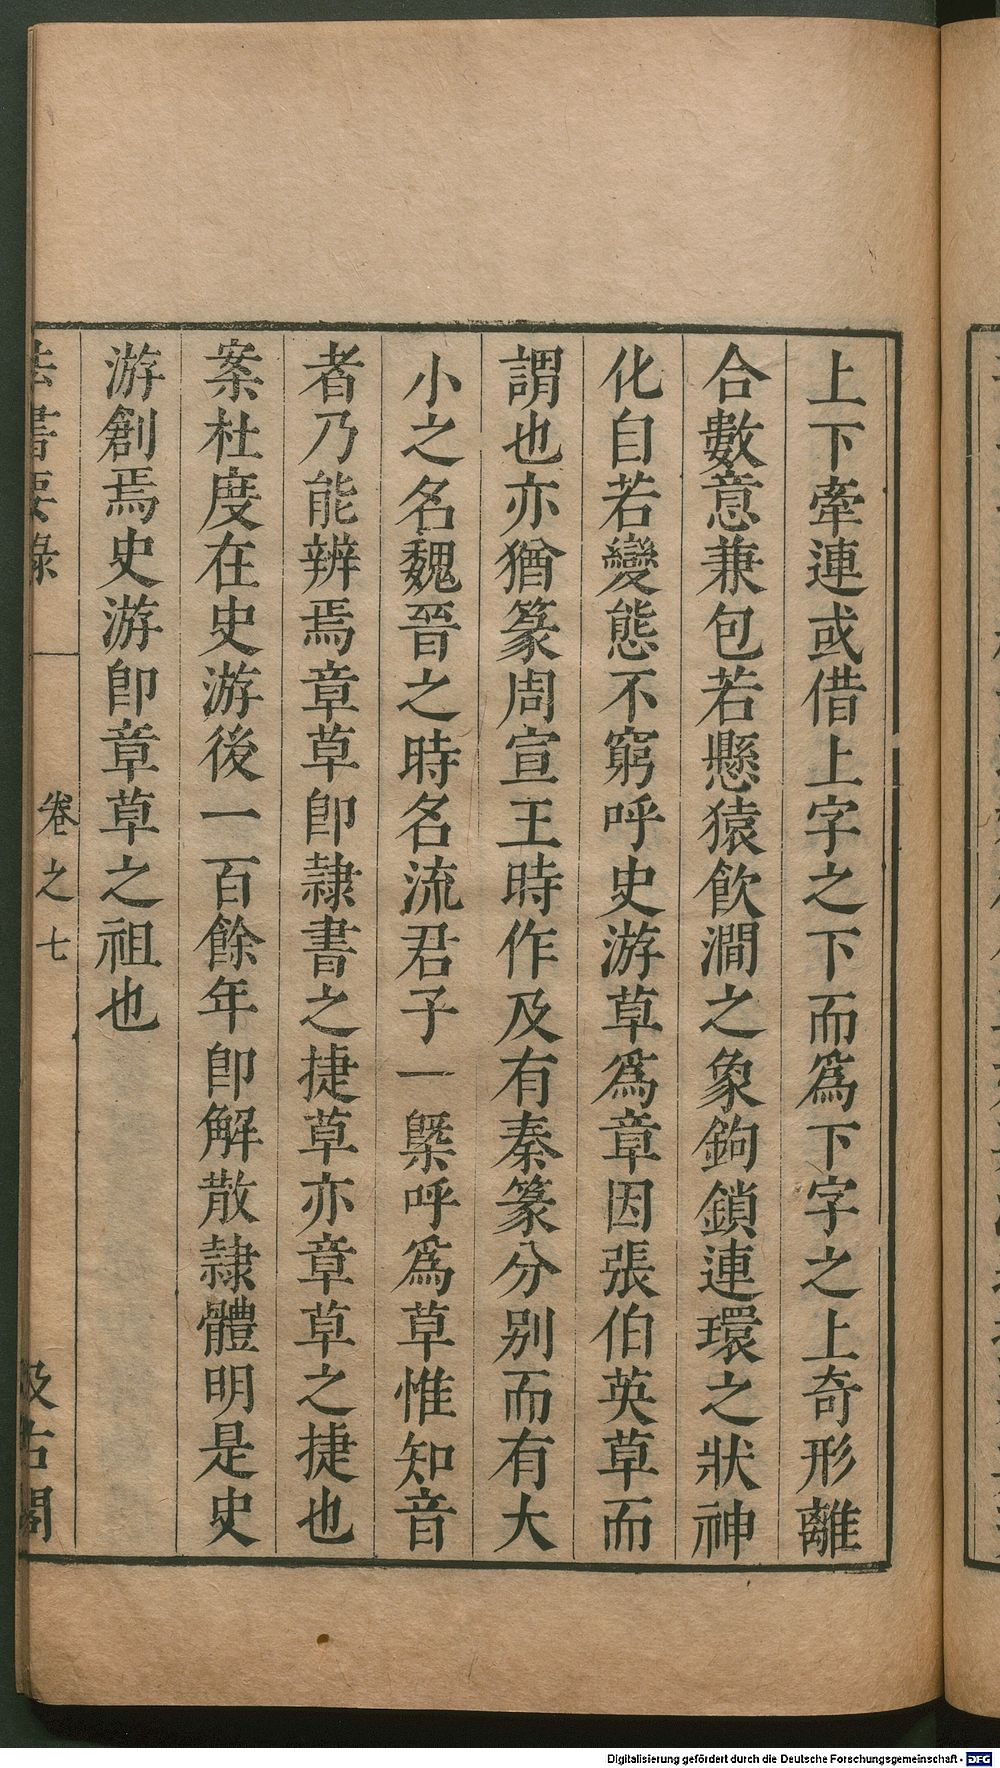 上下牽連或借上字之下而爲下字之上奇形離
合數意兼包若懸猿飲澗之象鉤鎖連環之狀神
化自若變態不窮呼史游草爲章因張伯英草而
謂也亦猶篆周宣王時作及有秦篆分别而有大
小之名魏晉之時名流君子一槩呼爲草惟知音
者乃能辨焉章草卽隷書之捷草亦章草之捷也
案杜度在史游後一百餘年卽解散隷體明是史
游創焉史游卽章草之祖也
法書要錄 卷之七 汲古閣
Digitalisierung gefördert durch die Deutsche Forschungsgemeinschaft - DFG